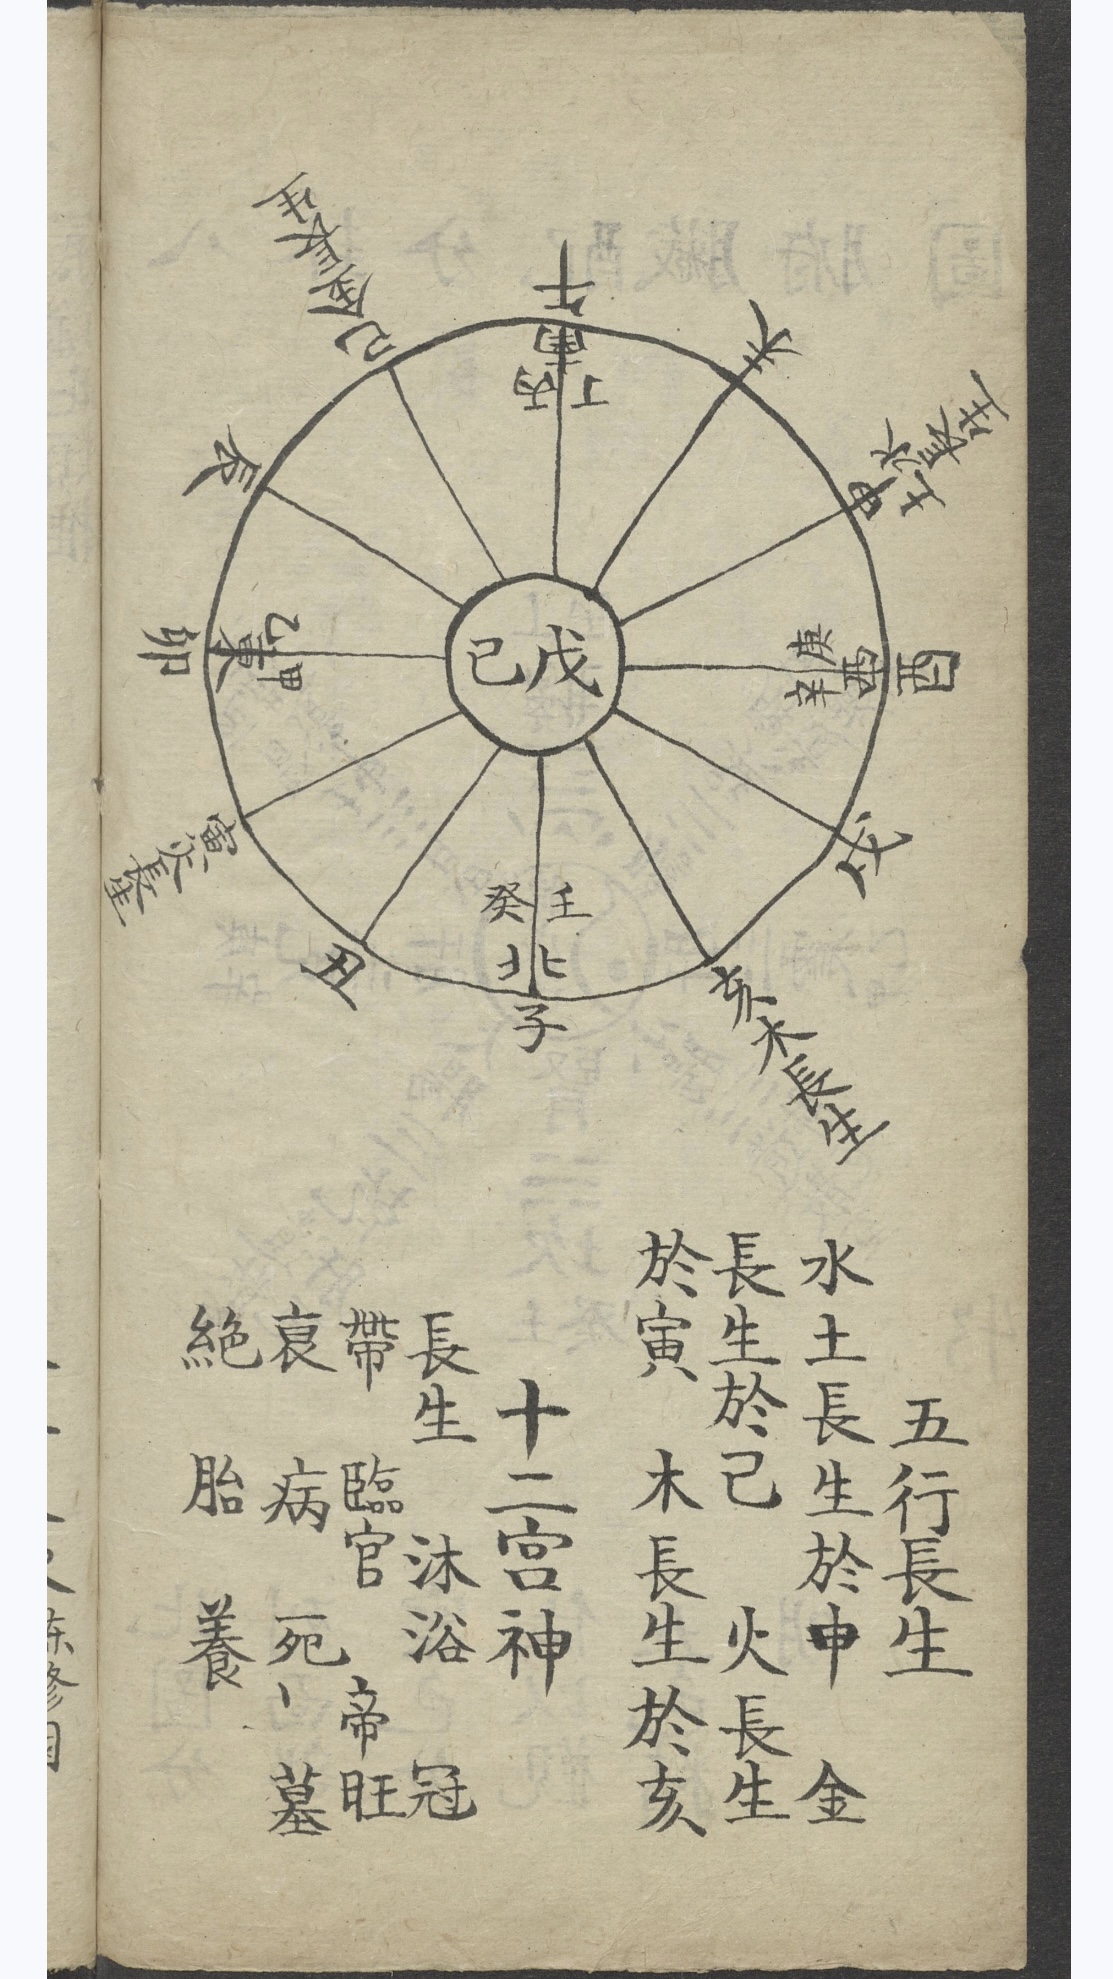 午
南
丙丁
未
申水土長生
庚
酉
西
辛
戌
亥木長生
壬
癸
北
子
丑
寅火長生
甲
東
乙
卯
辰
巳金長生
戊己
五行長生
水土長生於申 金
長生於己 火長生
於寅 木長生於亥
十二宮神
長生 沐浴 冠
帶 臨官 帝旺
衰 病 死 墓
絕 胎 養